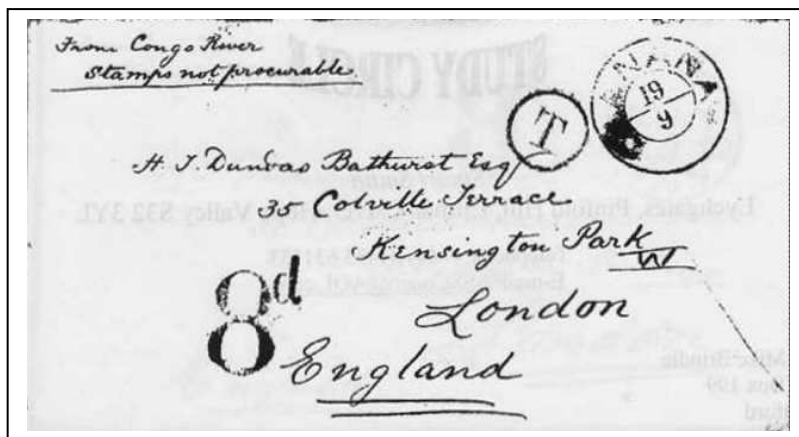 From Congo River
Stamps not procurable.
BANANA
19
9
T
H. J. Dundas Bathurst Esq
35 Colville Terrace
Kensington Park
W
8d
London
England
STUDY CIRCLE
Valley S32 3YL